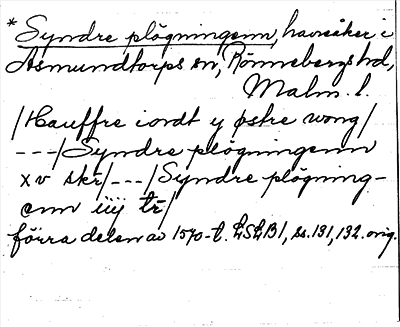 * Syndre plögningenn, havsåker i
Asmundtorps sn, Rönnebergs hd,
Malm. l.
/Hauffre iordt y østre wong/
---/Syndre plögningenn
xv skr/---/Syndre plögning-
enn iiij tr/
förra delen av 1570-t. LSLB1, ss. 131, 132. orig.